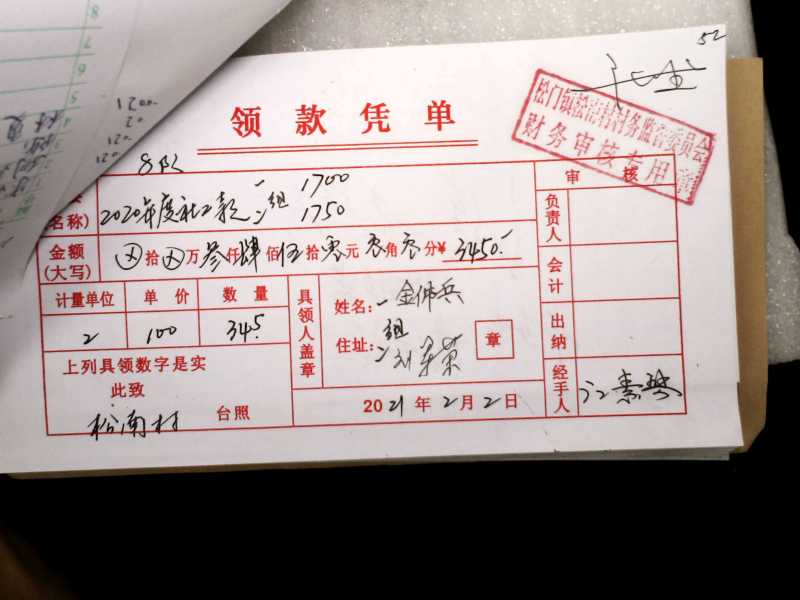 52
领款凭单
松门镇松南村村务监督委员会
财务审核专用章
8队
名称)
2020年度社工款 一 组 1700
二 1750
审核
负责人
金额
(大写)
拾 万叁仟肆佰伍拾零元零角零分¥3450.-
会计
计量单位 单价 数量
2 100 34.5
具领人盖章
姓名:一 金佩兵
组
住址:二
章
出纳
上列具领数字是实
此致
松南村 台照
2021年2月2日
经手人